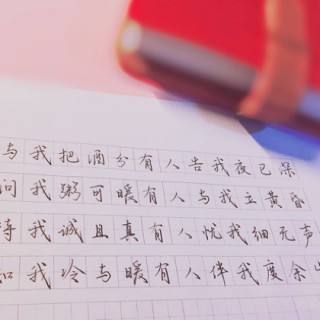 与我把酒分有人告我夜已深
问我粥可暖有人与我立黄昏
待我诚且真有人忧我细无声
知我冷与暖有人伴我度余